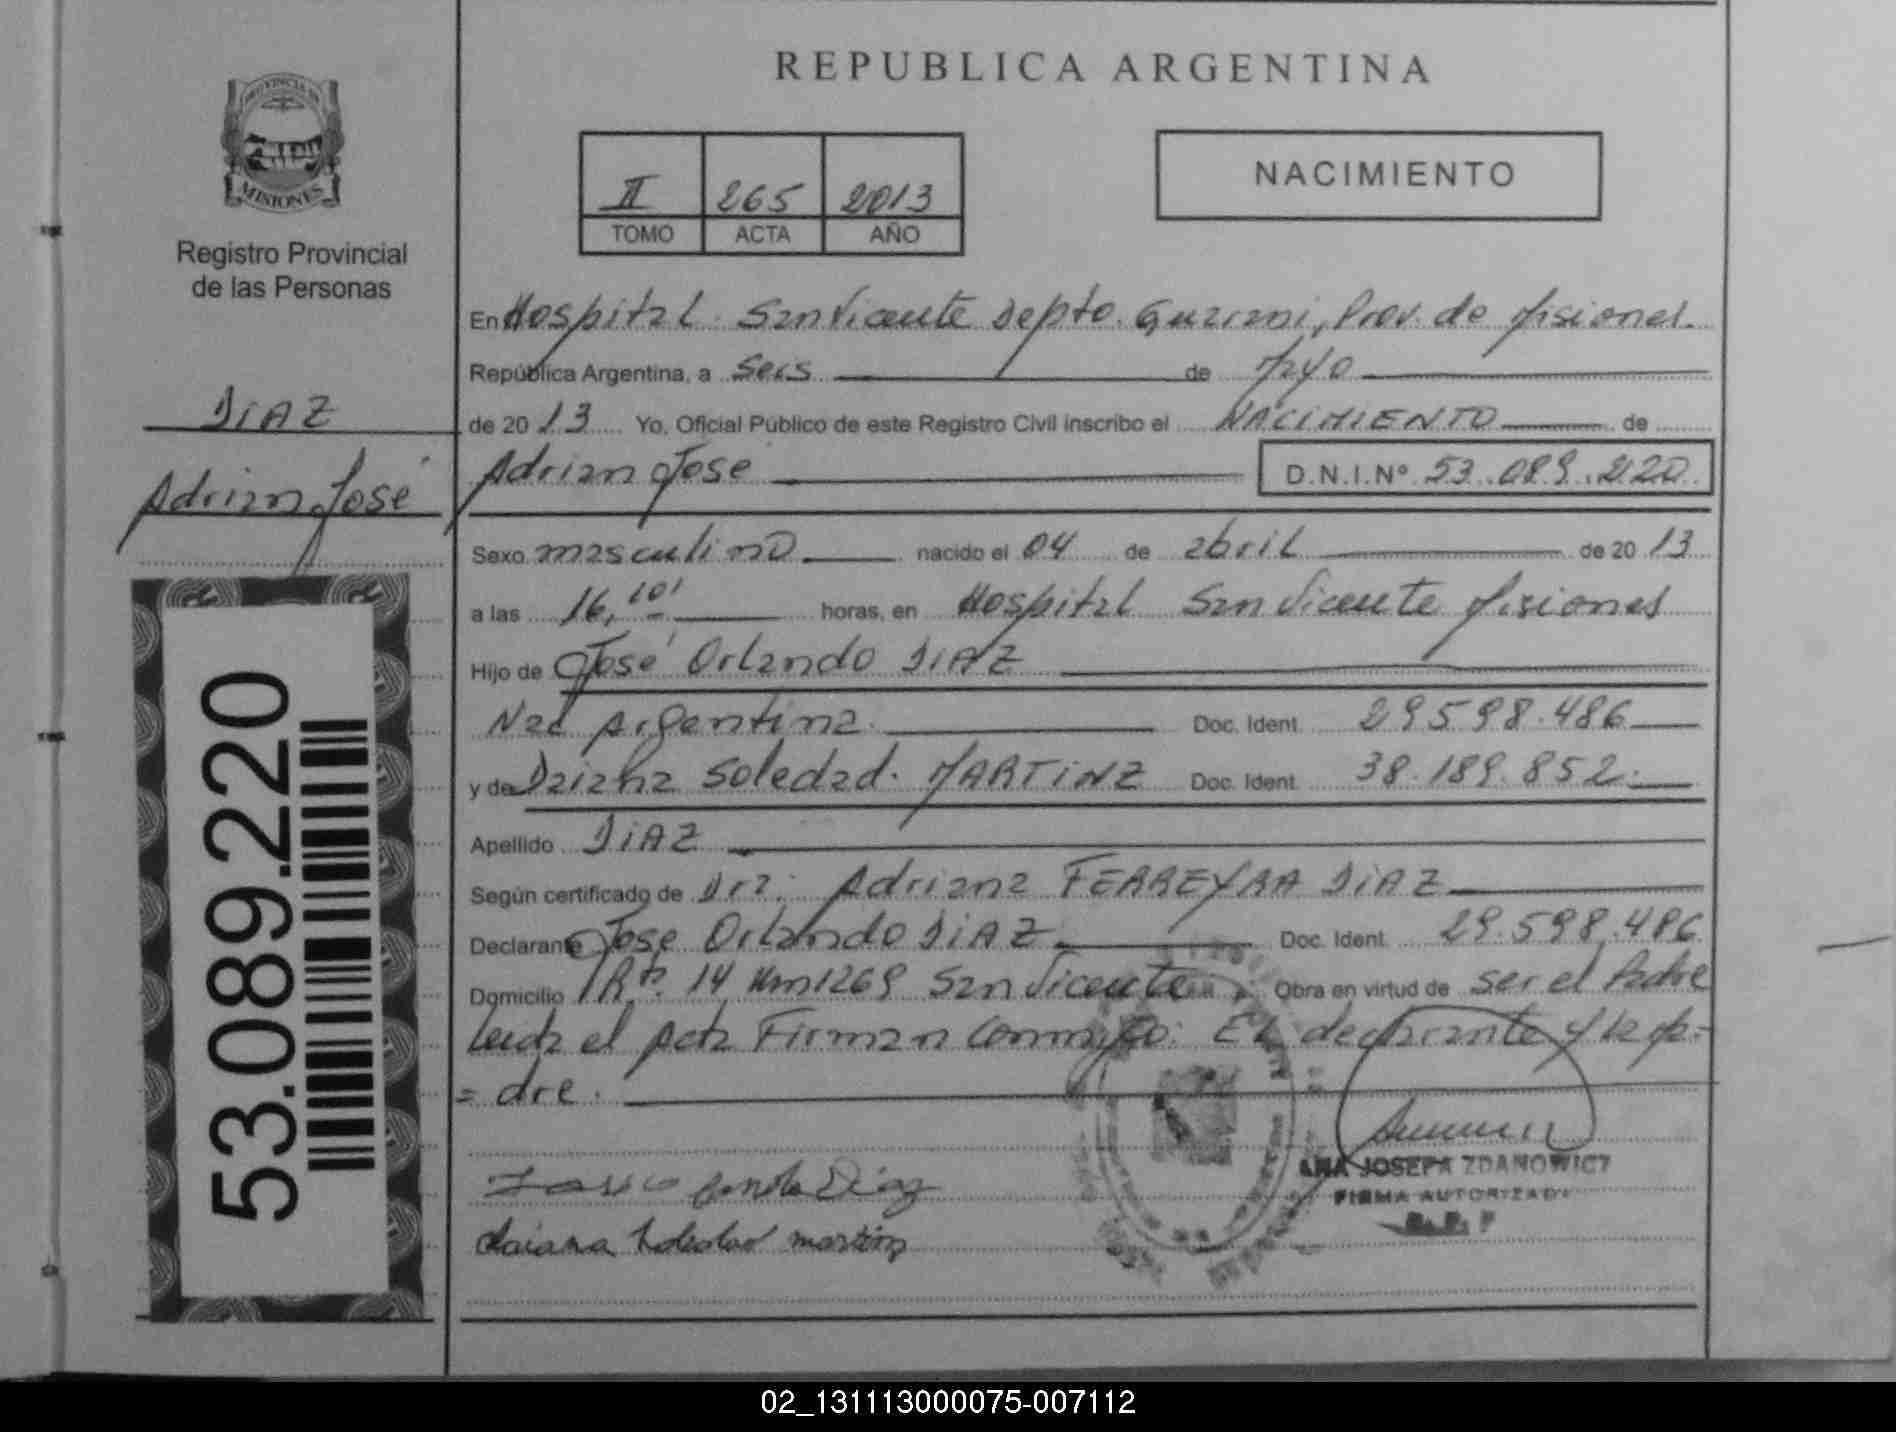 REPUBLICA ARGENTINA
PROVINCIA DE
MISIONES
Registro Provincial
de las Personas
II 265 2013
TOMO ACTA AÑO
NACIMIENTO
En Hospital San Vicente Depto. Guarani, Prov. de Misiones.
República Argentina, a seis de Myo
de 20 13 Yo, Oficial Público de este Registro Civil inscribo el NACIMIENTO de
Adrian José D.N.I.Nº 53.089.220
DIAZ
Adrian José
Sexo masculino nacido el 04 de abril de 20 13
a las 16,10' horas, en Hospital San Vicente Misiones
Hijo de José Orlando DIAZ
Nac Argentina. Doc. Ident. 29598.486
y de Daiana Soledad. MARTINZ Doc. Ident. 38.189.852.
Apellido DIAZ
Según certificado de Dra. Adriana FERREYRA DIAZ
Declarante Jose Orlando DIAZ Doc. Ident. 29.598.486
Domicilio Rta. 14 Km1269 San Vicente Obra en virtud de ser el Padre
Leida el Acta Firman Conmigo: El declarante y la Ma-
= dre.
53.089.220
ANA JOSEFA ZDANOWICZ
FIRMA AUTORIZADA
Diaz
daiana
02_131113000075-007112